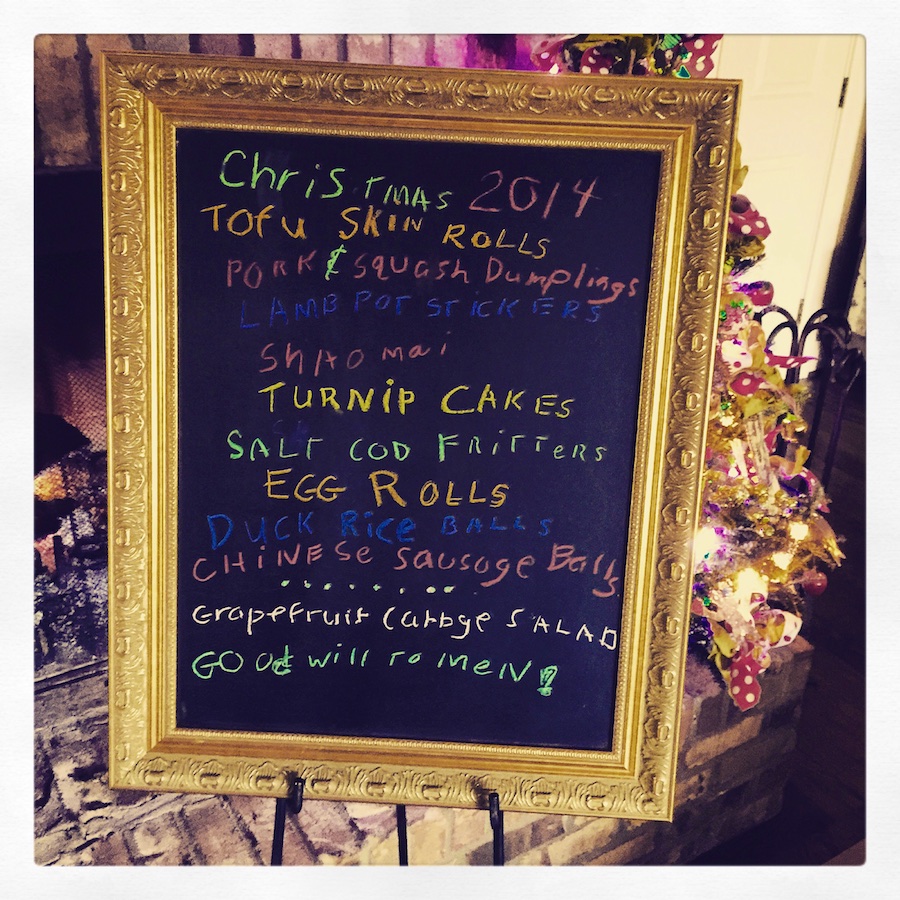 Christmas 2014
Tofu SKIN ROLLS
PORK & squash Dumplings
LAMB POT STICKERS
SHAO mai
TURNIP CAKES
SALT COD FRITTERS
EGG ROLLS
DUCK Rice BALLS
CHINESE sausage Balls
Grapefruit Cabbge SALAD
GOOd will to meN!